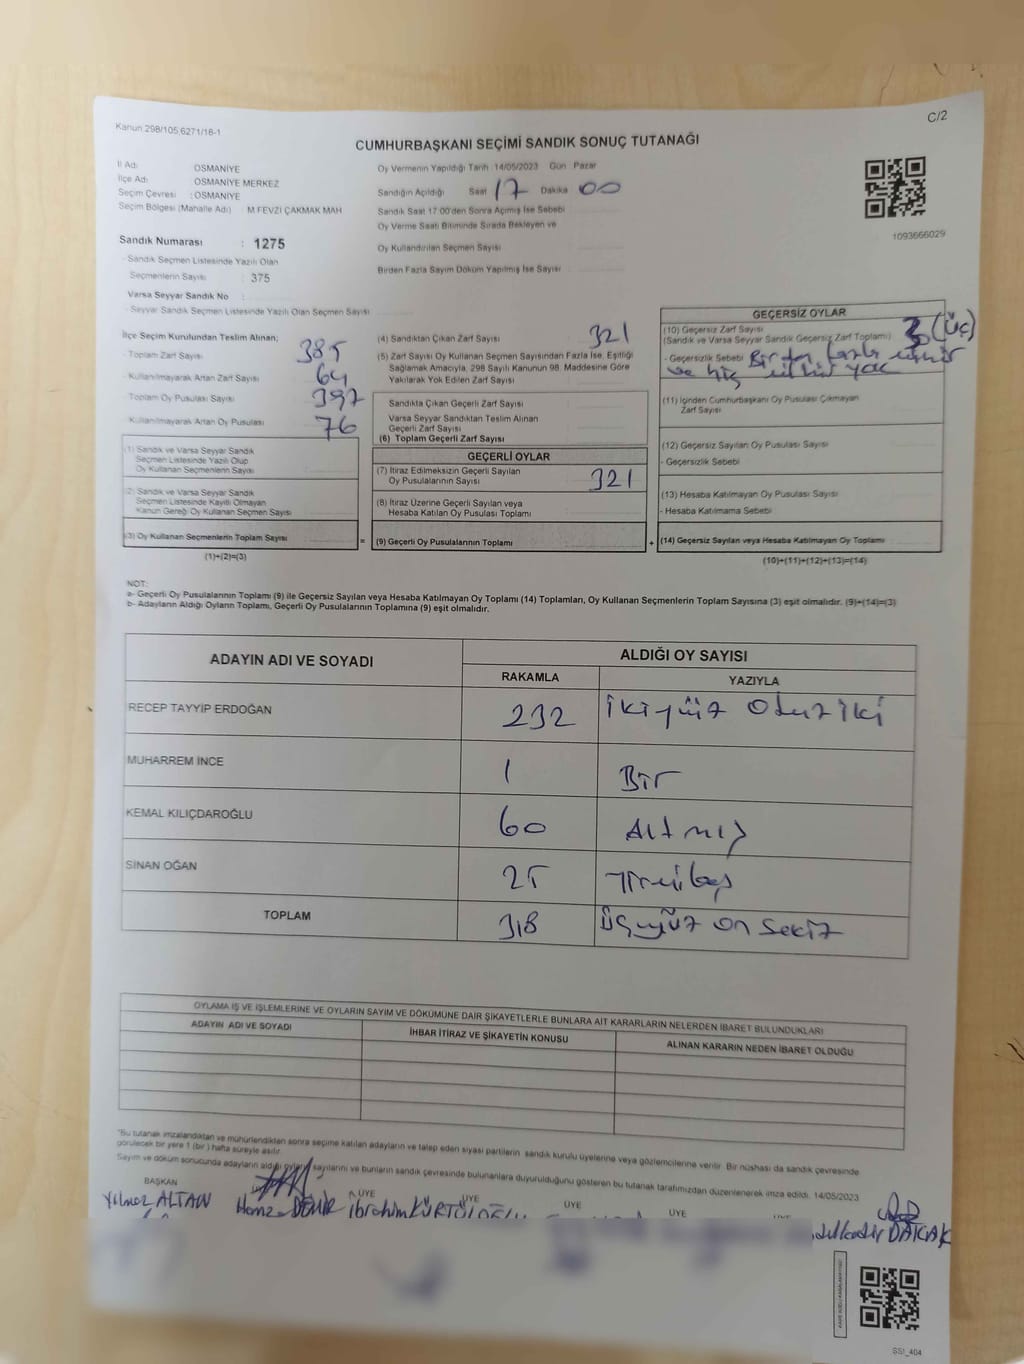 Kanun 298/105,6271/18-1
C/2
CUMHURBAŞKANI SEÇİMİ SANDIK SONUÇ TUTANAĞI
İl Adı : OSMANİYE
İlçe Adı : OSMANİYE MERKEZ
Seçim Çevresi : OSMANİYE
Seçim Bölgesi (Mahalle Adı) : M.FEVZİ ÇAKMAK MAH
Sandık Numarası : 1275
- Sandık Seçmen Listesinde Yazılı Olan
Seçmenlerin Sayısı : 375
Varsa Seyyar Sandık No :
- Seyyar Sandık Seçmen Listesinde Yazılı Olan Seçmen Sayısı
Oy Vermenin Yapıldığı Tarih :14/05/2023 Gün : Pazar
Sandığın Açıldığı Saat 17 Dakika 00
Sandık Saat 17:00'den Sonra Açımış İse Sebebi
Oy Verme Saati Bitiminde Sırada Bekleyen ve
Oy Kullandırılan Seçmen Sayısı
Birden Fazla Sayım Döküm Yapılmış İse Sayısı
1093666029
İlçe Seçim Kurulundan Teslim Alınan;
- Toplam Zarf Sayısı 385
- Kullanılmayarak Artan Zarf Sayısı 64
- Toplam Oy Pusulası Sayısı 397
- Kullanılmayarak Artan Oy Pusulası 76
(1) Sandık ve Varsa Seyyar Sandık
Seçmen Listesinde Yazılı Olup
Oy Kullanan Seçmenlerin Sayısı
(2) Sandık ve Varsa Seyyar Sandık
Seçmen Listesinde Kayıtlı Olmayan
Kanun Gereği Oy Kullanan Seçmen Sayısı
(3) Oy Kullanan Seçmenlerin Toplam Sayısı
(1)+(2)=(3)
=
(4) Sandıktan Çıkan Zarf Sayısı 321
(5) Zarf Sayısı Oy Kullanan Seçmen Sayısından Fazla İse, Eşitliği
Sağlamak Amacıyla, 298 Sayılı Kanunun 98. Maddesine Göre
Yakılarak Yok Edilen Zarf Sayısı
Sandıkta Çıkan Geçerli Zarf Sayısı
Varsa Seyyar Sandıktan Teslim Alınan
Geçerli Zarf Sayısı
(6) Toplam Geçerli Zarf Sayısı
GEÇERLİ OYLAR
(7) İtiraz Edilmeksizin Geçerli Sayılan
Oy Pusulalarının Sayısı 321
(8) İtiraz Üzerine Geçerli Sayılan veya
Hesaba Katılan Oy Pusulası Toplamı
(9) Geçerli Oy Pusulalarının Toplamı
+
GEÇERSİZ OYLAR
(10) Geçersiz Zarf Sayısı
(Sandık ve Varsa Seyyar Sandık Geçersiz Zarf Toplamı) 3 (Üç)
- Geçersizlik Sebebi Birden fazla mühür
ve hiç mühür yok
(11) İçinden Cumhurbaşkanı Oy Pusulası Çıkmayan
Zarf Sayısı
(12) Geçersiz Sayılan Oy Pusulası Sayısı
- Geçersizlik Sebebi
(13) Hesaba Katılmayan Oy Pusulası Sayısı
- Hesaba Katılmama Sebebi
(14) Geçersiz Sayılan veya Hesaba Katılmayan Oy Toplamı
(10)+(11)+(12)+(13)=(14)
NOT:
a- Geçerli Oy Pusulalarının Toplamı (9) ile Geçersiz Sayılan veya Hesaba Katılmayan Oy Toplamı (14) Toplamları, Oy Kullanan Seçmenlerin Toplam Sayısına (3) eşit olmalıdır. (9)+(14)=(3)
b- Adayların Aldığı Oyların Toplamı, Geçerli Oy Pusulalarının Toplamına (9) eşit olmalıdır.
ADAYIN ADI VE SOYADI
ALDIĞI OY SAYISI
RAKAMLA YAZIYLA
RECEP TAYYİP ERDOĞAN 232 ikiyüz otuz iki
MUHARREM İNCE 1 Bir
KEMAL KILIÇDAROĞLU 60 Altmış
SİNAN OĞAN 25 Yirmibeş
TOPLAM 318 Üçyüz on sekiz
OYLAMA İŞ VE İŞLEMLERİNE VE OYLARIN SAYIM VE DÖKÜMÜNE DAİR ŞİKAYETLERLE BUNLARA AİT KARARLARIN NELERDEN İBARET BULUNDUKLARI
ADAYIN ADI VE SOYADI İHBAR İTİRAZ VE ŞİKAYETİN KONUSU ALINAN KARARIN NEDEN İBARET OLDUĞU
*Bu tutanak imzalandıktan ve mühürlendikten sonra seçime katılan adayların ve talep eden siyasi partilerin sandık kurulu üyelerine veya gözlemcilerine verilir. Bir nüshası da sandık çevresinde
görülecek bir yere 1 (bir ) hafta süreyle asılır.
Sayım ve döküm sonucunda adayların aldığı oyların sayılarını ve bunların sandık çevresinde bulunanlara duyurulduğunu gösteren bu tutanak tarafımızdan düzenlenerek imza edildi. 14/05/2023
BAŞKAN ÜYE ÜYE ÜYE ÜYE
Yılmaz ALTAN Hamza DEMİR İbrahim KÜRTÜLOĞLU DAKAK
SSI_404